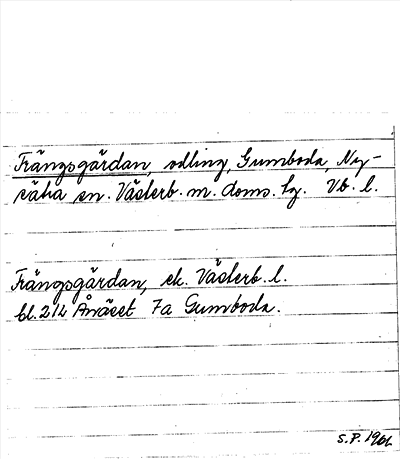 Trängsgärdan, odling, Gumboda, Ny-
sätra sn. Västerb. m. doms. tg. Vb. l.
Trängsgärdan, ek. Västerb. l.
bl. 214 Ånäset 7a Gumboda.
S.P.